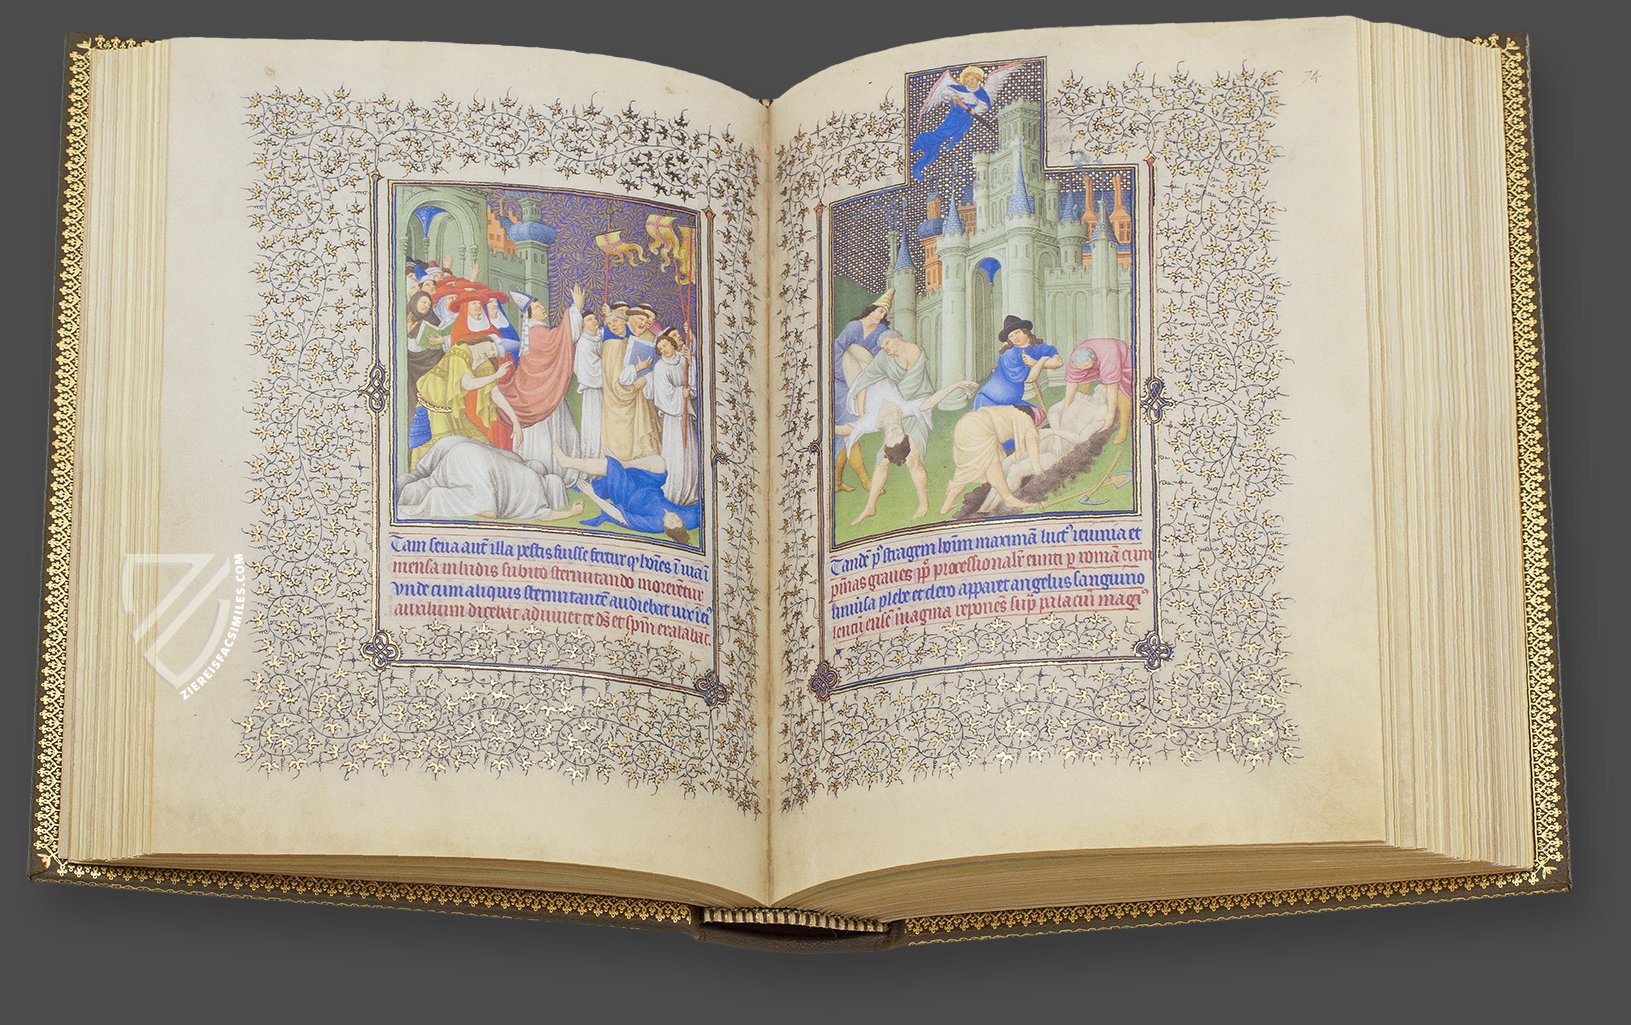 Tam seua aut illa pestis fuisse fertur q hoies i uia i
mensa in ludis subito sternutando morerent
Vnde cum aliquis sternutante audiebat
auxilium dicebat adiuuet te ds et spm exalabat.
74
Tande p stragem hoim maxima ieiunia et
graues processionalr eunti p roma cum
plebe et clero apparet angelus sanguino
ense uagina repones sup palaciu
ZIEREISFACSIMILES.COM